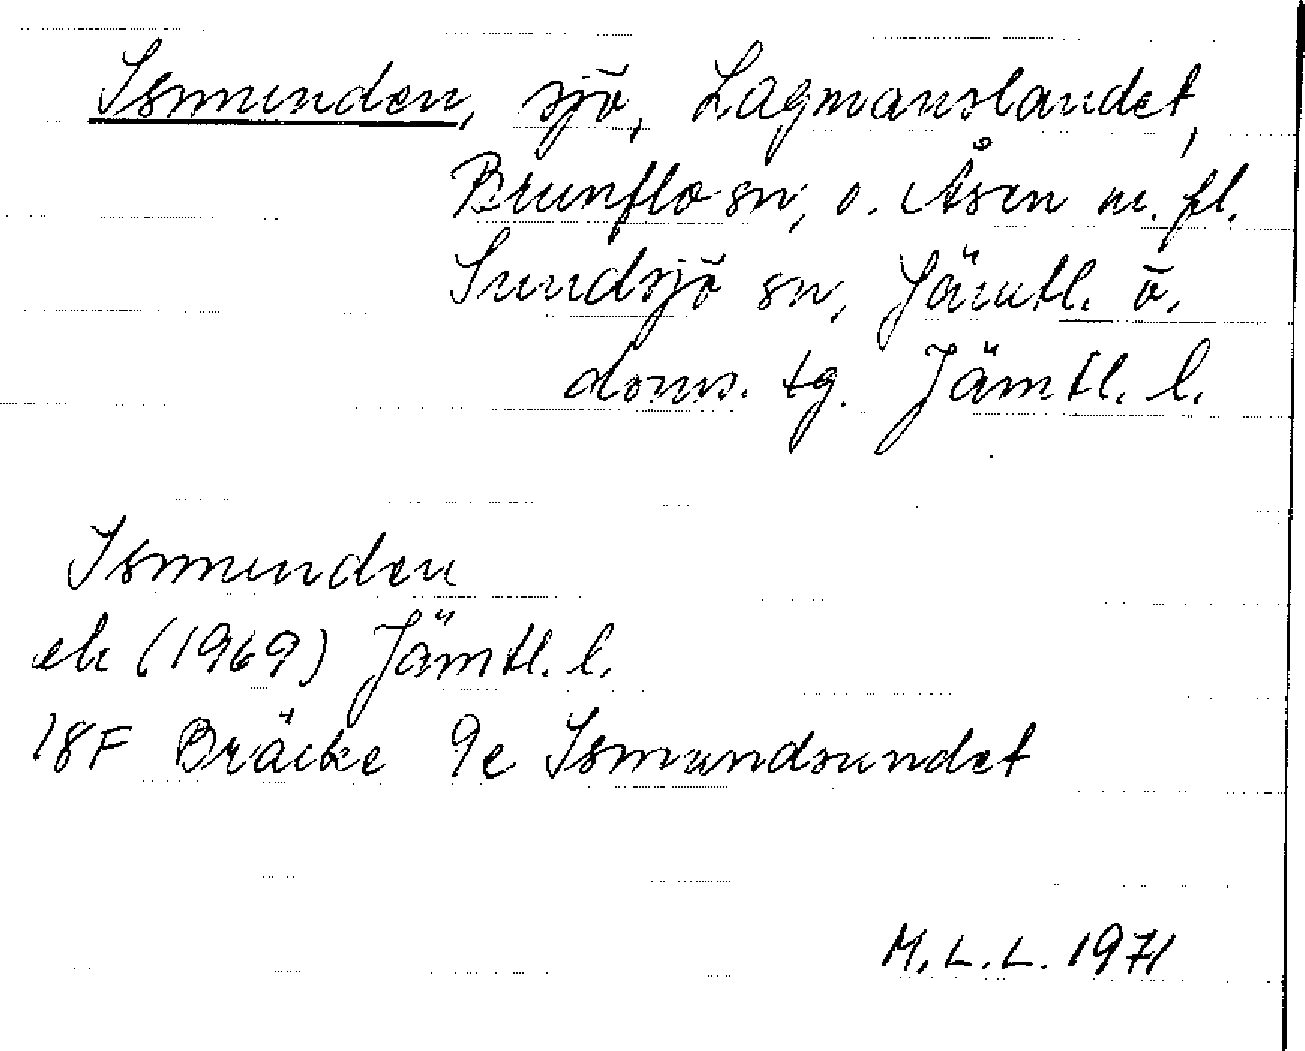 Ismunden, sjö, Lagmanslandet,
Brunflo sn, o. Åsen m. fl.
Sundsjö sn, Jämtl. ö.
doms. tg. Jämtl. l.
Ismunden
ek (1969) Jämtl. l.
18F Bräcke 9e Ismundsundet
M. L. L. 1971